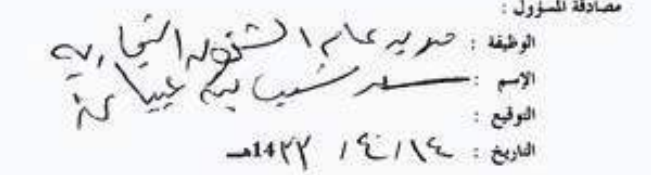 مصادقة المسؤول :
الوظيفة : مدير عام الشئون التجارية
الاسم : شبيب بن
التوقيع :
التاريخ : ١٤ / ٤ / 14٢٢هـ